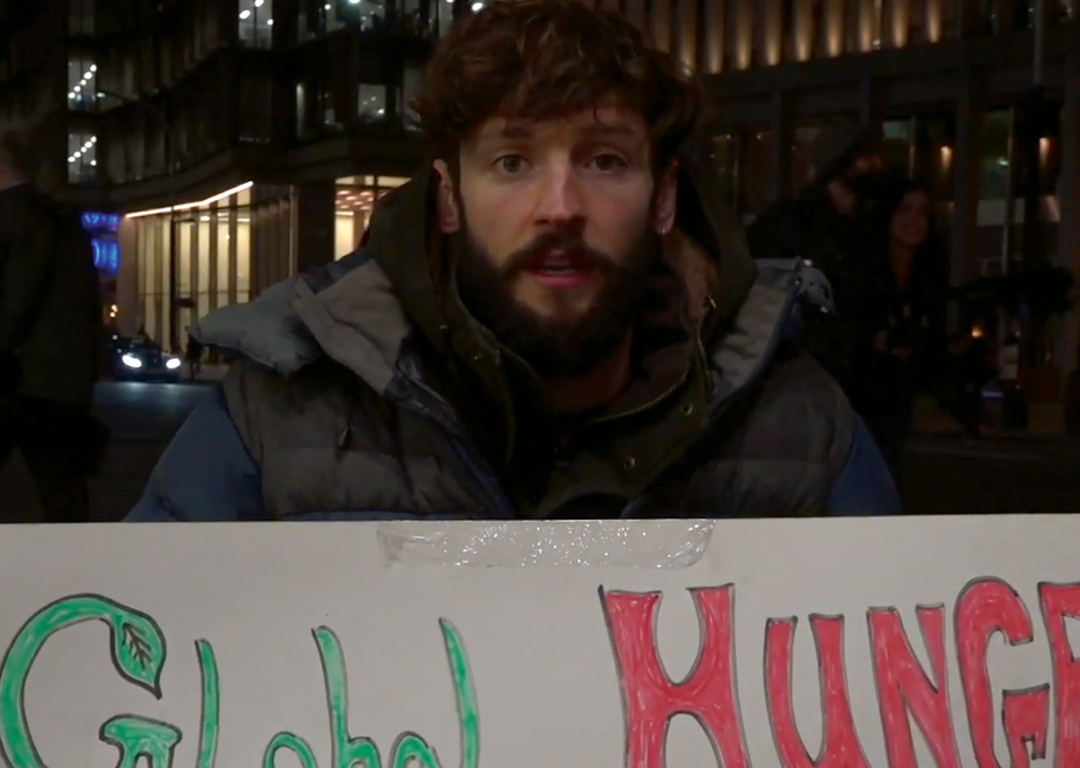 Global HUNGE